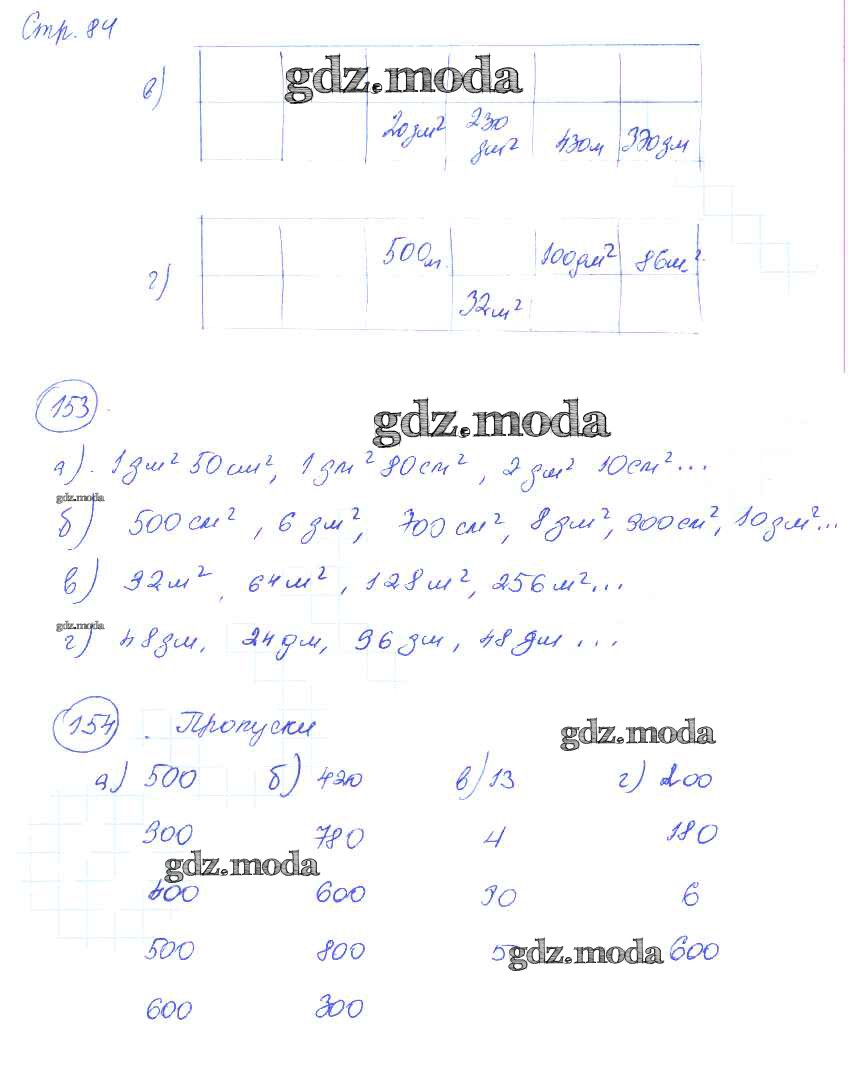 Стр. 84
gdz.moda
в)
20дм² 230 дм² 430м 370дм
500м 100дм² 86м²
г)
32м²
153
gdz.moda
а). 1дм² 50см², 1дм² 80см², 2дм² 10см²...
gdz.moda
б) 500см², 6дм², 700см², 8дм², 900см², 10дм²...
в) 32м², 64м², 128м², 256м²...
gdz.moda
г) 48дм, 24дм, 96дм, 48дм ...
154. Пропуски
gdz.moda
а) 500 б) 420 в) 13 г) 200
900 780 4 180
gdz.moda
400 600 90 6
500 800 5 600
gdz.moda
600 300